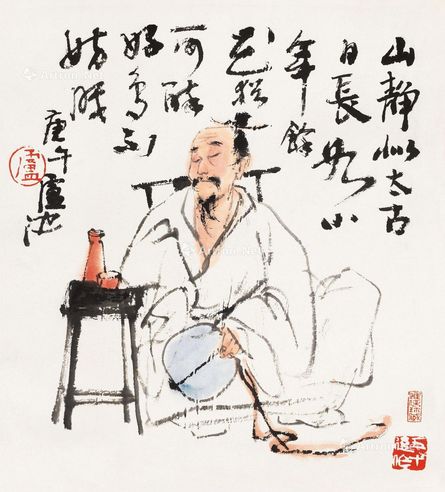 山靜似太古
日長如小
年餘
花猶
可醉
好鳥不
妨眠
庚午盧沉
盧
Artron.Net